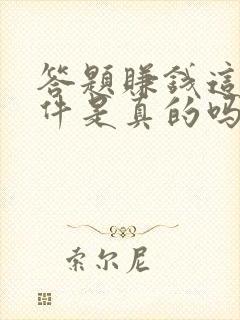 答题赚钱這
件是真的吗
索尔尼